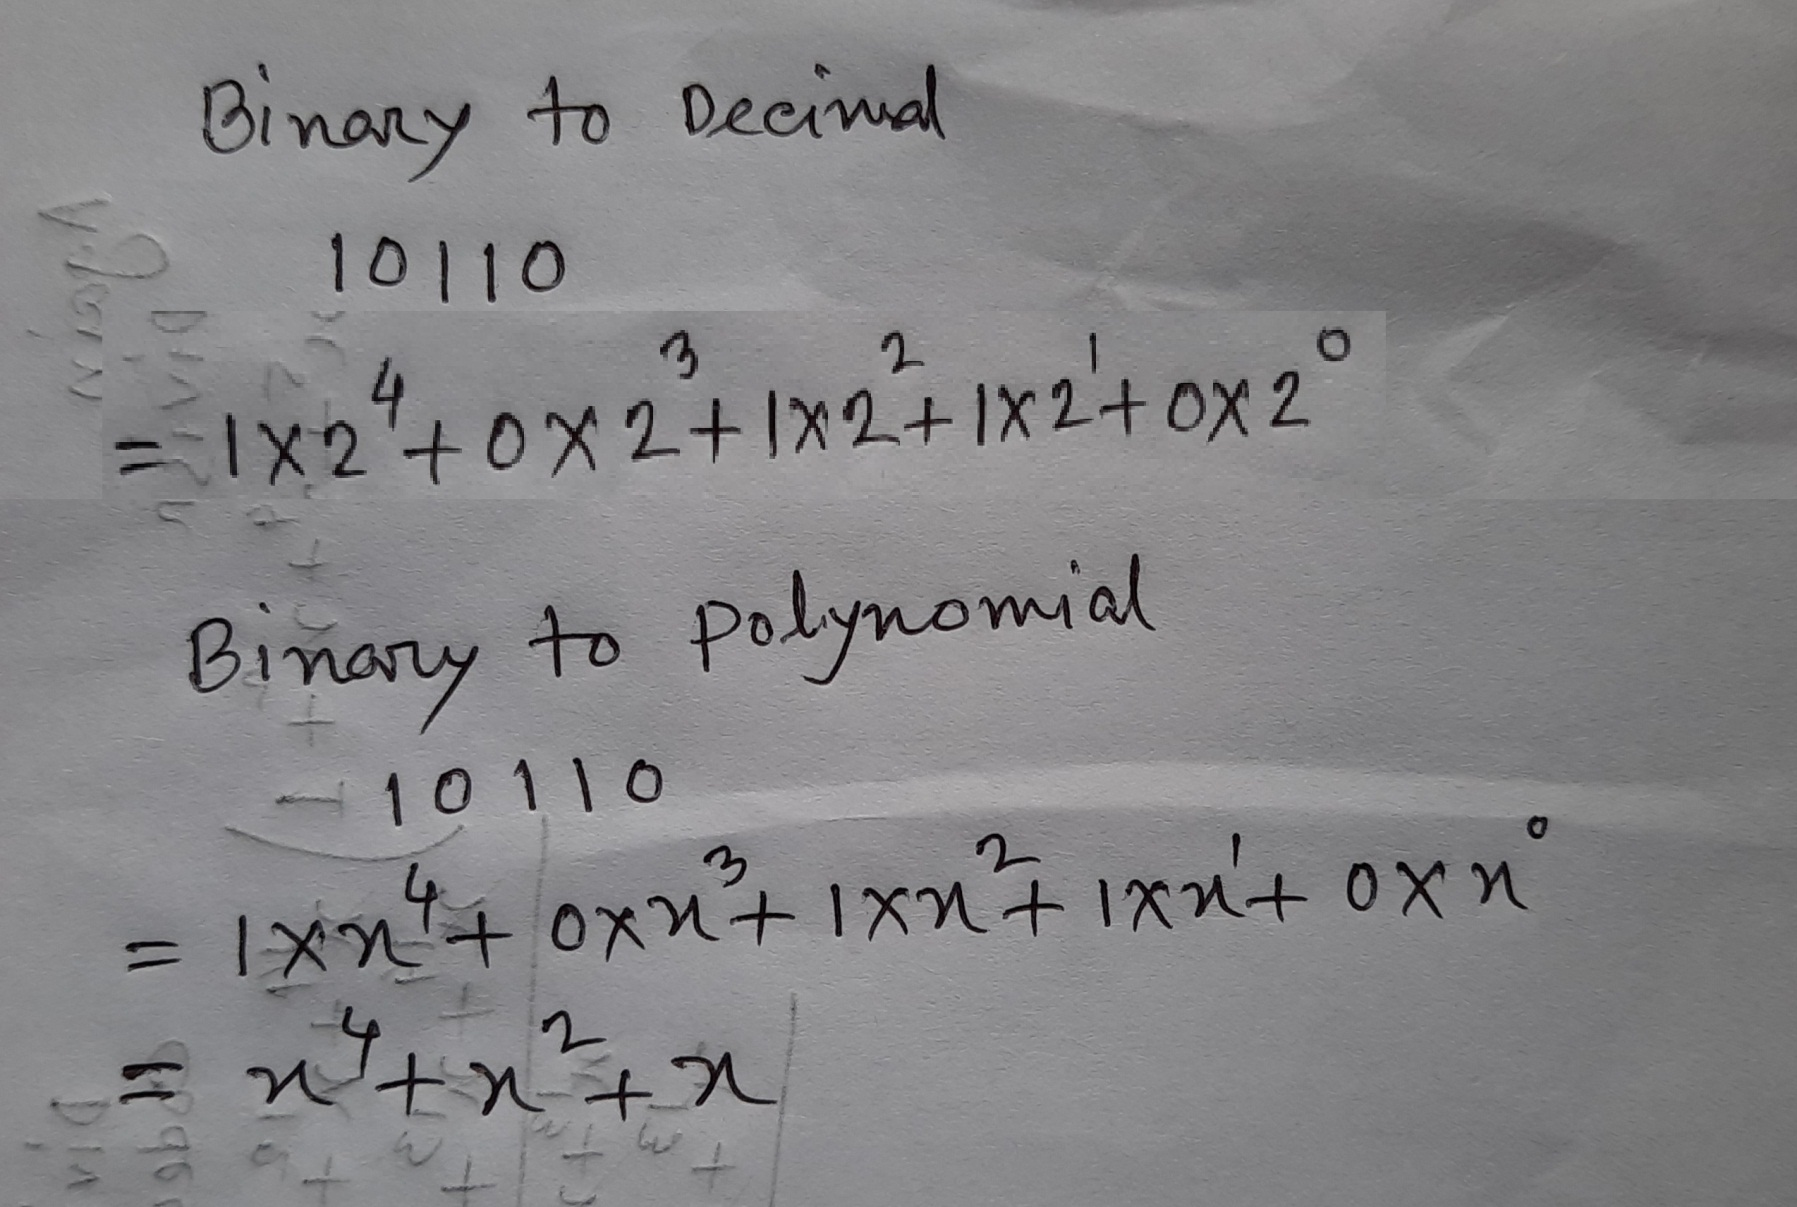 Binary to Decimal
10110
= 1×2⁴+0×2³+1×2²+1×2¹+0×2⁰
Binary to Polynomial
10110
= 1×x⁴+0×x³+1×x²+1×x¹+0×x⁰
= x⁴+x²+x